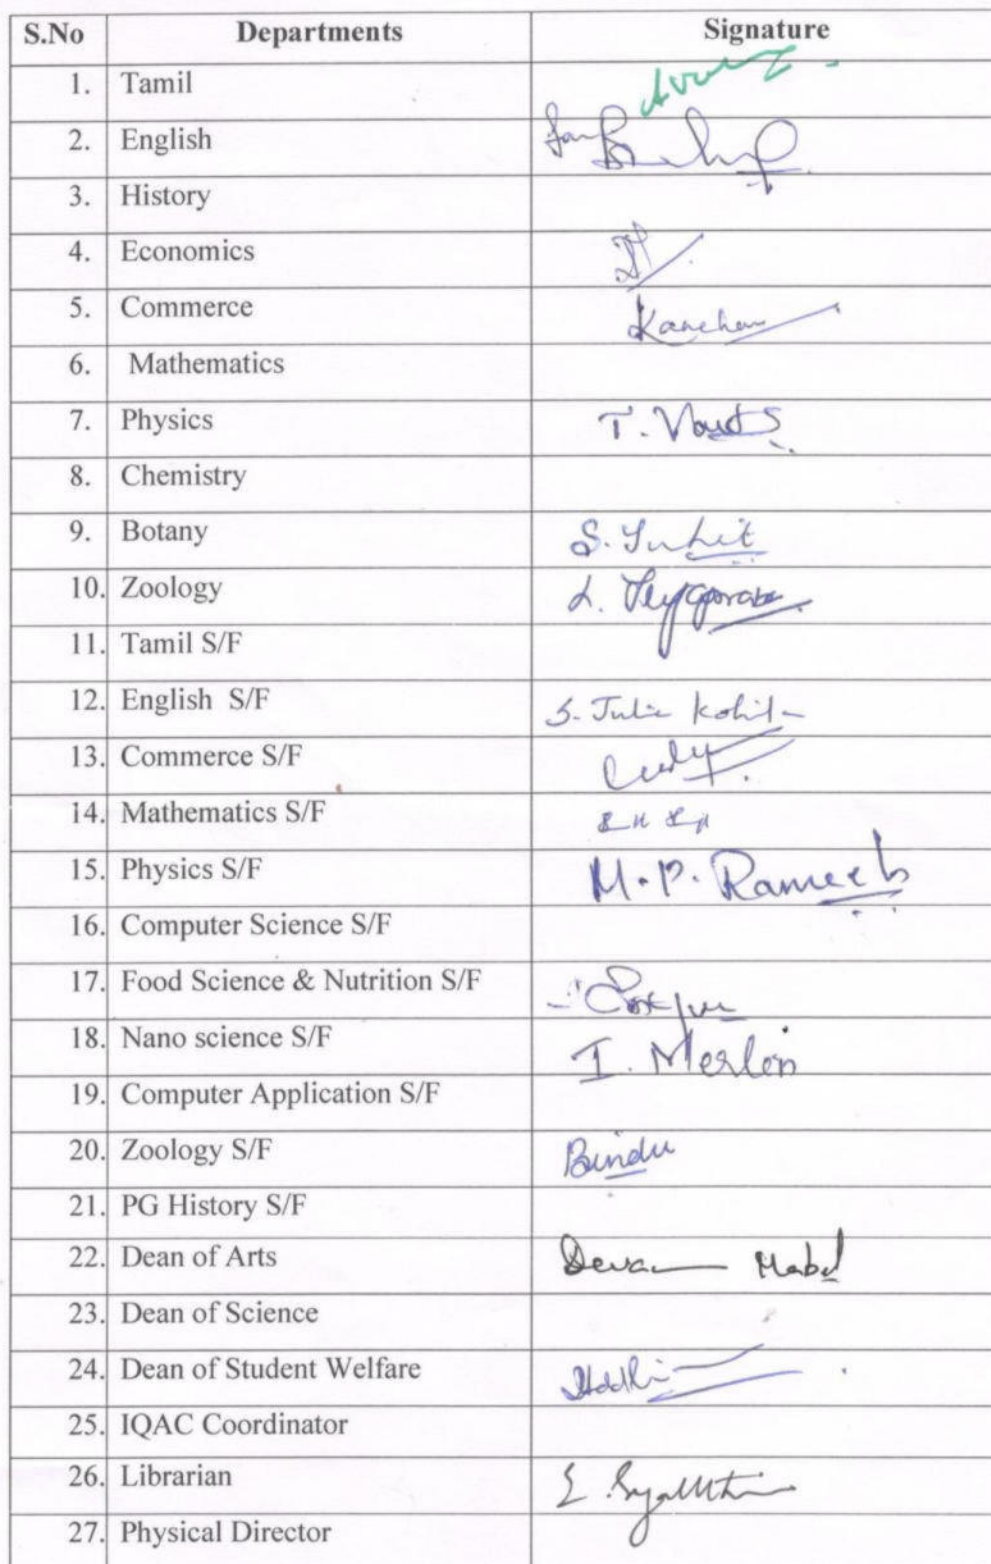 S.No Departments Signature
1. Tamil
2. English
3. History
4. Economics
5. Commerce
6. Mathematics
7. Physics T.
8. Chemistry
9. Botany S.
10. Zoology
11. Tamil S/F
12. English S/F S. Julie Kohila
13. Commerce S/F
14. Mathematics S/F
15. Physics S/F M.P.
16. Computer Science S/F
17. Food Science & Nutrition S/F
18. Nano science S/F I. Merlin
19. Computer Application S/F
20. Zoology S/F Bindu
21. PG History S/F
22. Dean of Arts Mabel
23. Dean of Science
24. Dean of Student Welfare
25. IQAC Coordinator
26. Librarian
27. Physical Director